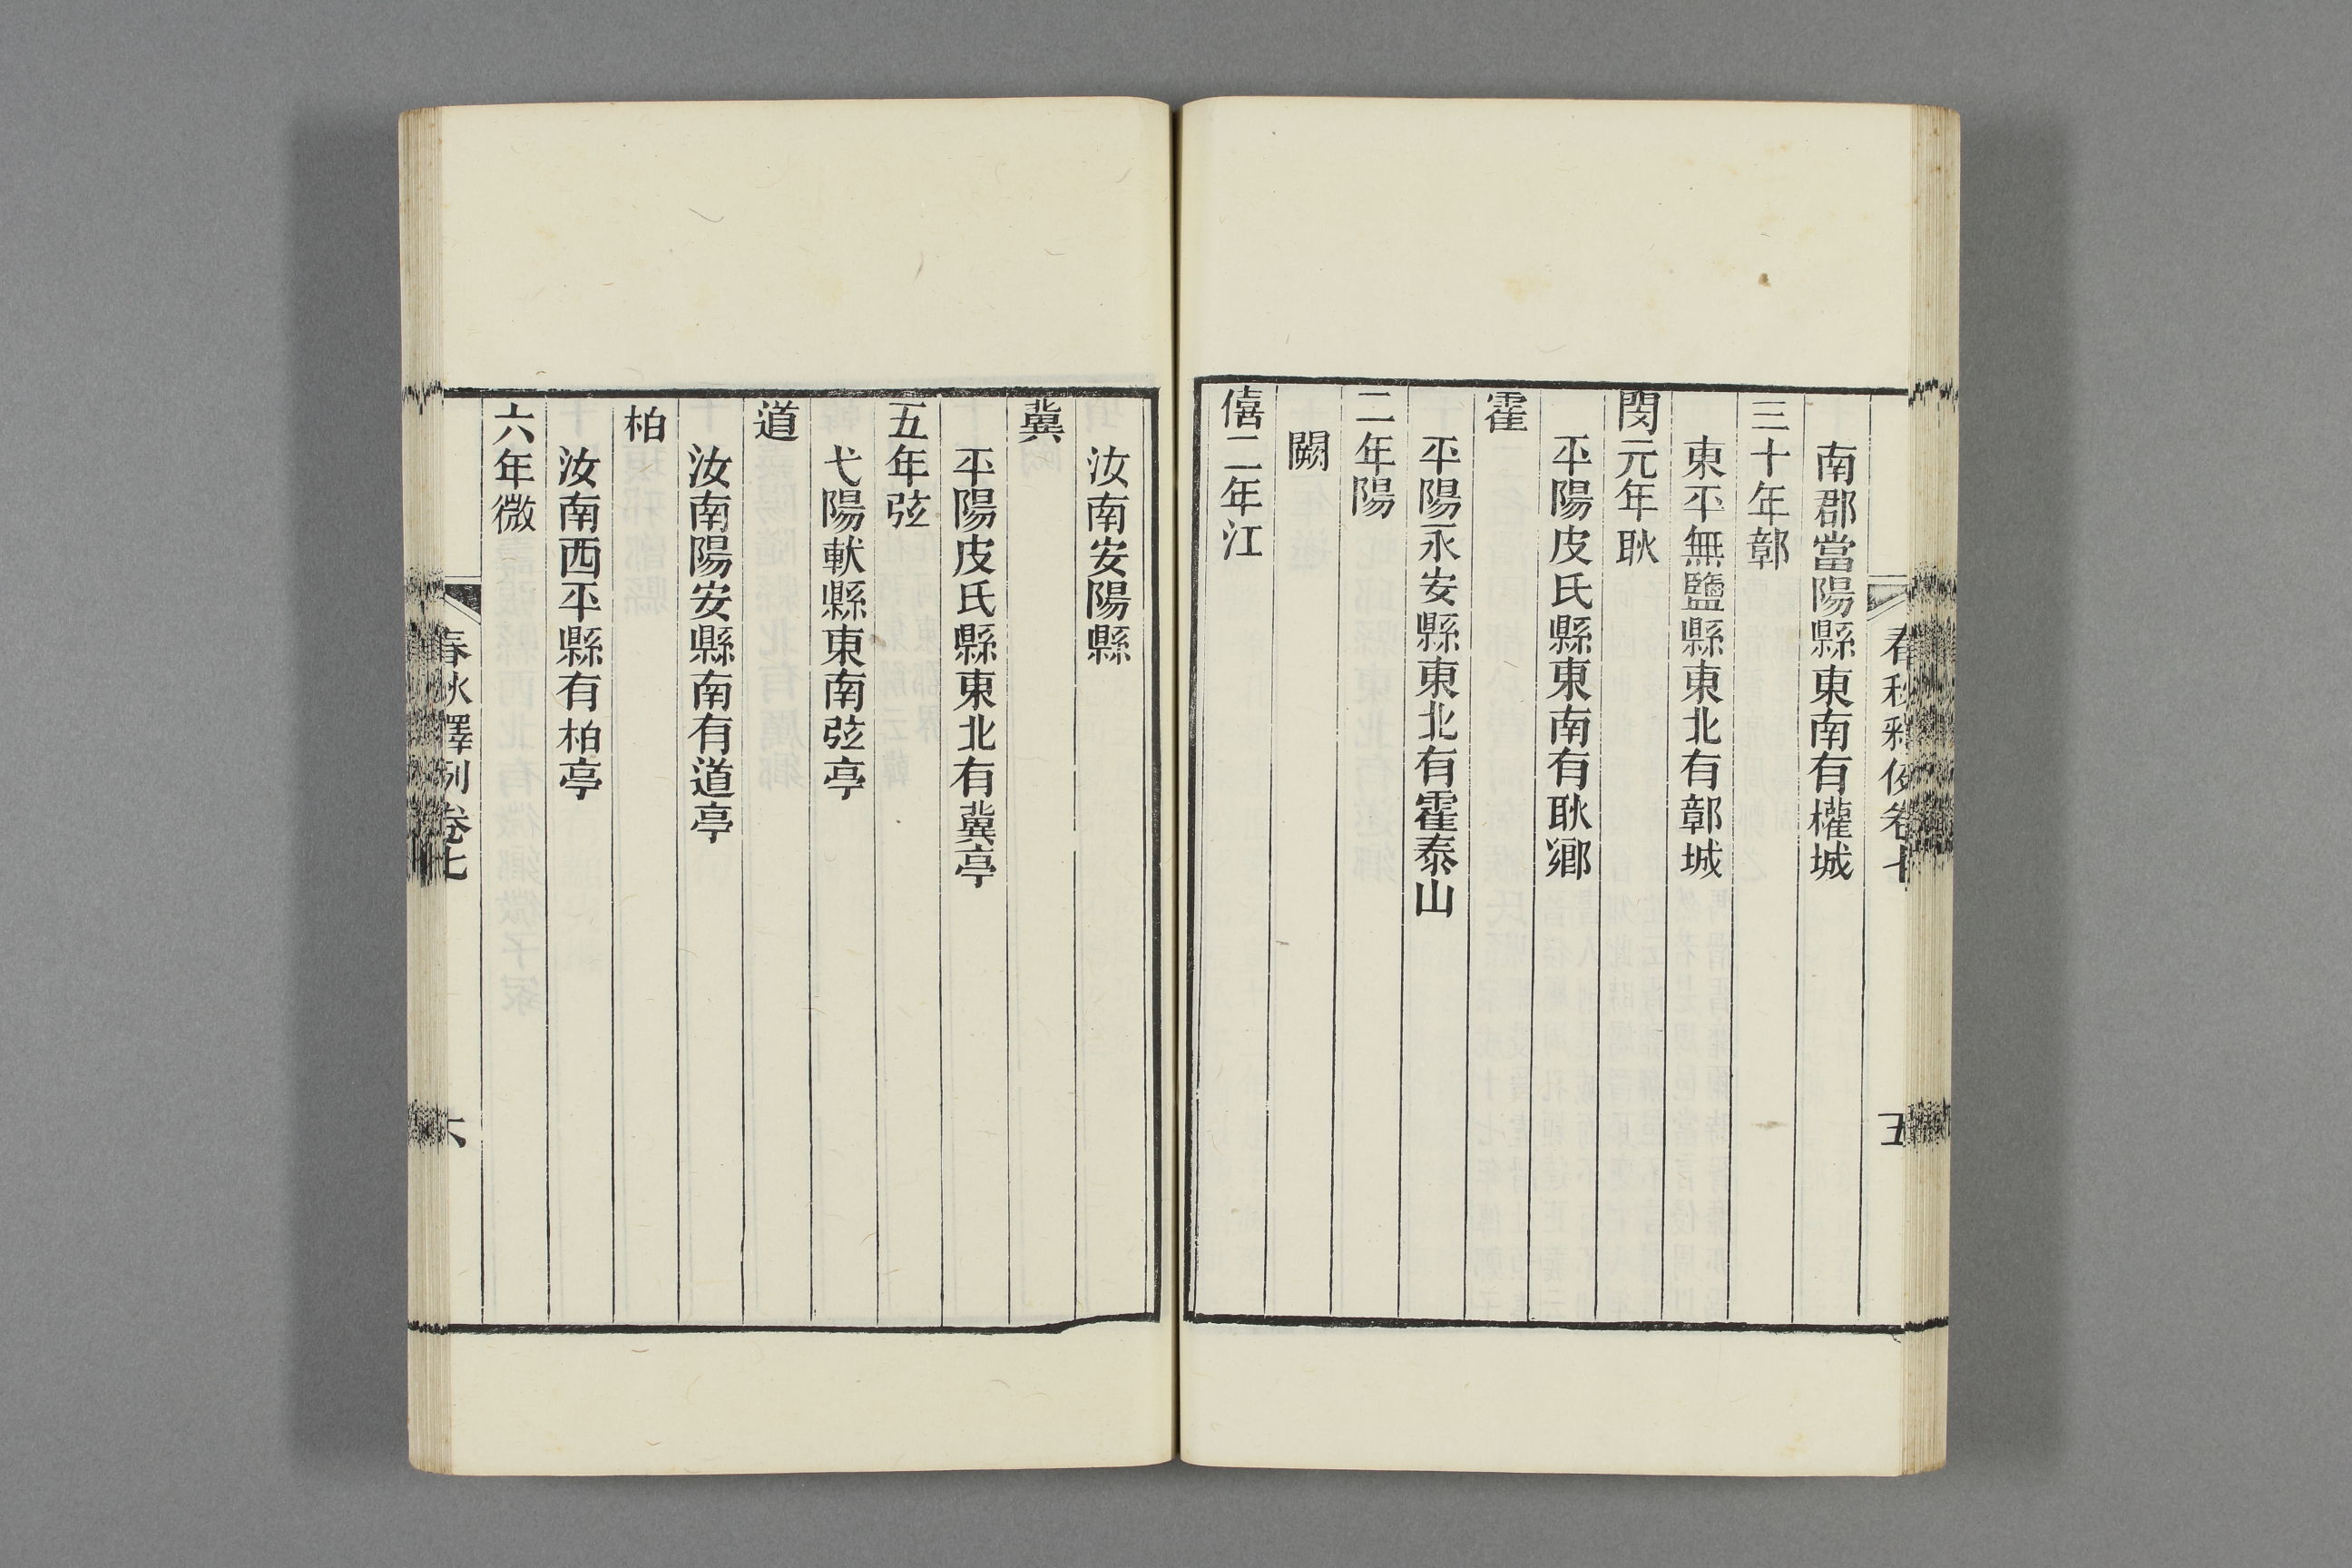 南郡當陽縣東南有權城
三十年鄣
東平無鹽縣東北有鄣城
閔元年耿
平陽皮氏縣東南有耿鄉
霍
平陽永安縣東北有霍泰山
二年陽
闕
僖二年江
汝南安陽縣
冀
平陽皮氏縣東北有冀亭
五年弦
弋陽軑縣東南弦亭
道
汝南陽安縣南有道亭
柏
汝南西平縣有柏亭
六年微
春秋釋例卷七
五
春秋釋例卷七
六